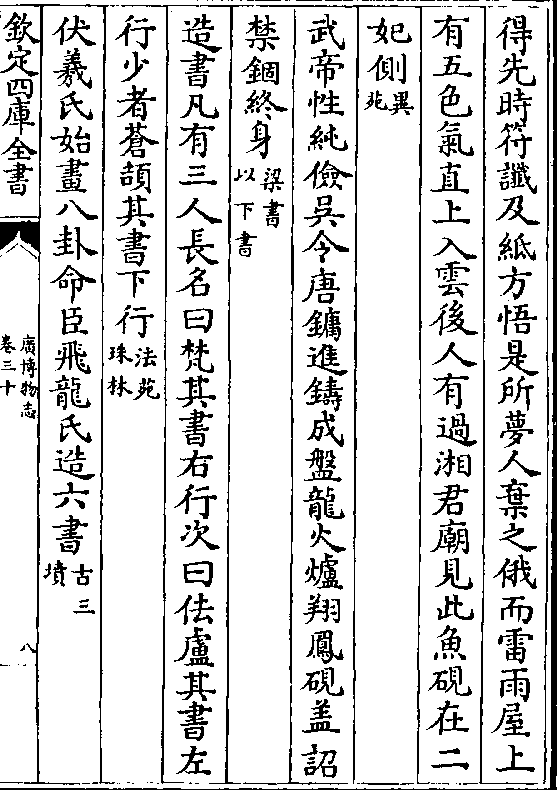 得先時符讖及紙方悟是所夢人棄之俄而雷雨屋上
有五色氣直上入雲後人有過湘君廟見此魚硯在二
妃側異苑
武帝性純儉吳令唐鏞進鑄成盤龍火爐翔鳳硯盖詔
禁錮終身梁書以下書
造書凡有三人長名曰梵其書右行次曰佉盧其書左
行少者蒼頡其書下行法苑珠林
伏羲氏始畫八卦命臣飛龍氏造六書古三墳
欽定四庫全書
廣博物志
卷三十
八